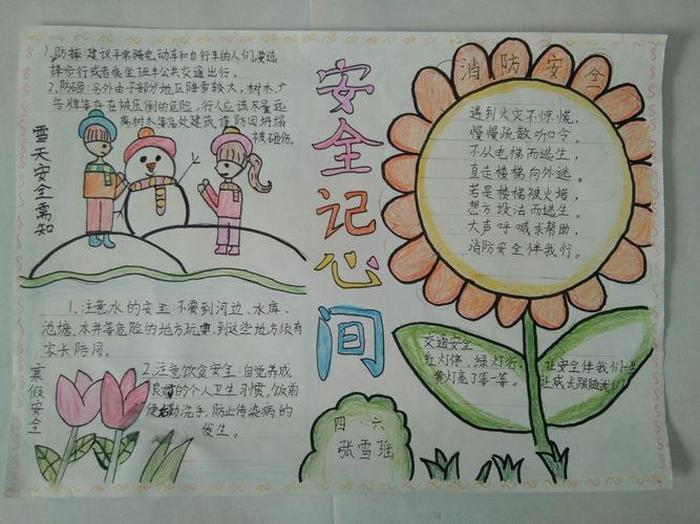 1、防撞:建议平常骑电动车和自行车的人们要选
择步行或者乘坐班车公共交通出行。
2、防砸:另外由于部分地区降雪较大,树木、广
告牌等存在被压倒的危险,行人应该尽量远
离树木等危处建筑谨防因坍塌
被砸伤。
雪天安全需知
安全记心间
消防安全
遇到火灾不惊慌,
慢慢疏散听口令。
不从电梯而逃生,
直走楼梯向外逃。
若是楼梯被火堵,
想方设法而逃生。
大声呼喊求帮助,
消防安全伴我行。
1、注意水的安全:不要到河边、水库、
池塘、水井等危险的地方玩耍,到这些地方须有
家长陪同。
寒假安全
2、注意饮食安全,自觉养成
良好的个人卫生习惯,饭前
便后勤洗手,防止传染病的
发生。
交通安全
红灯停,绿灯行,
黄灯亮了等一等。
让安全伴我们
让成长跟随我们
四、六
张雪瑶